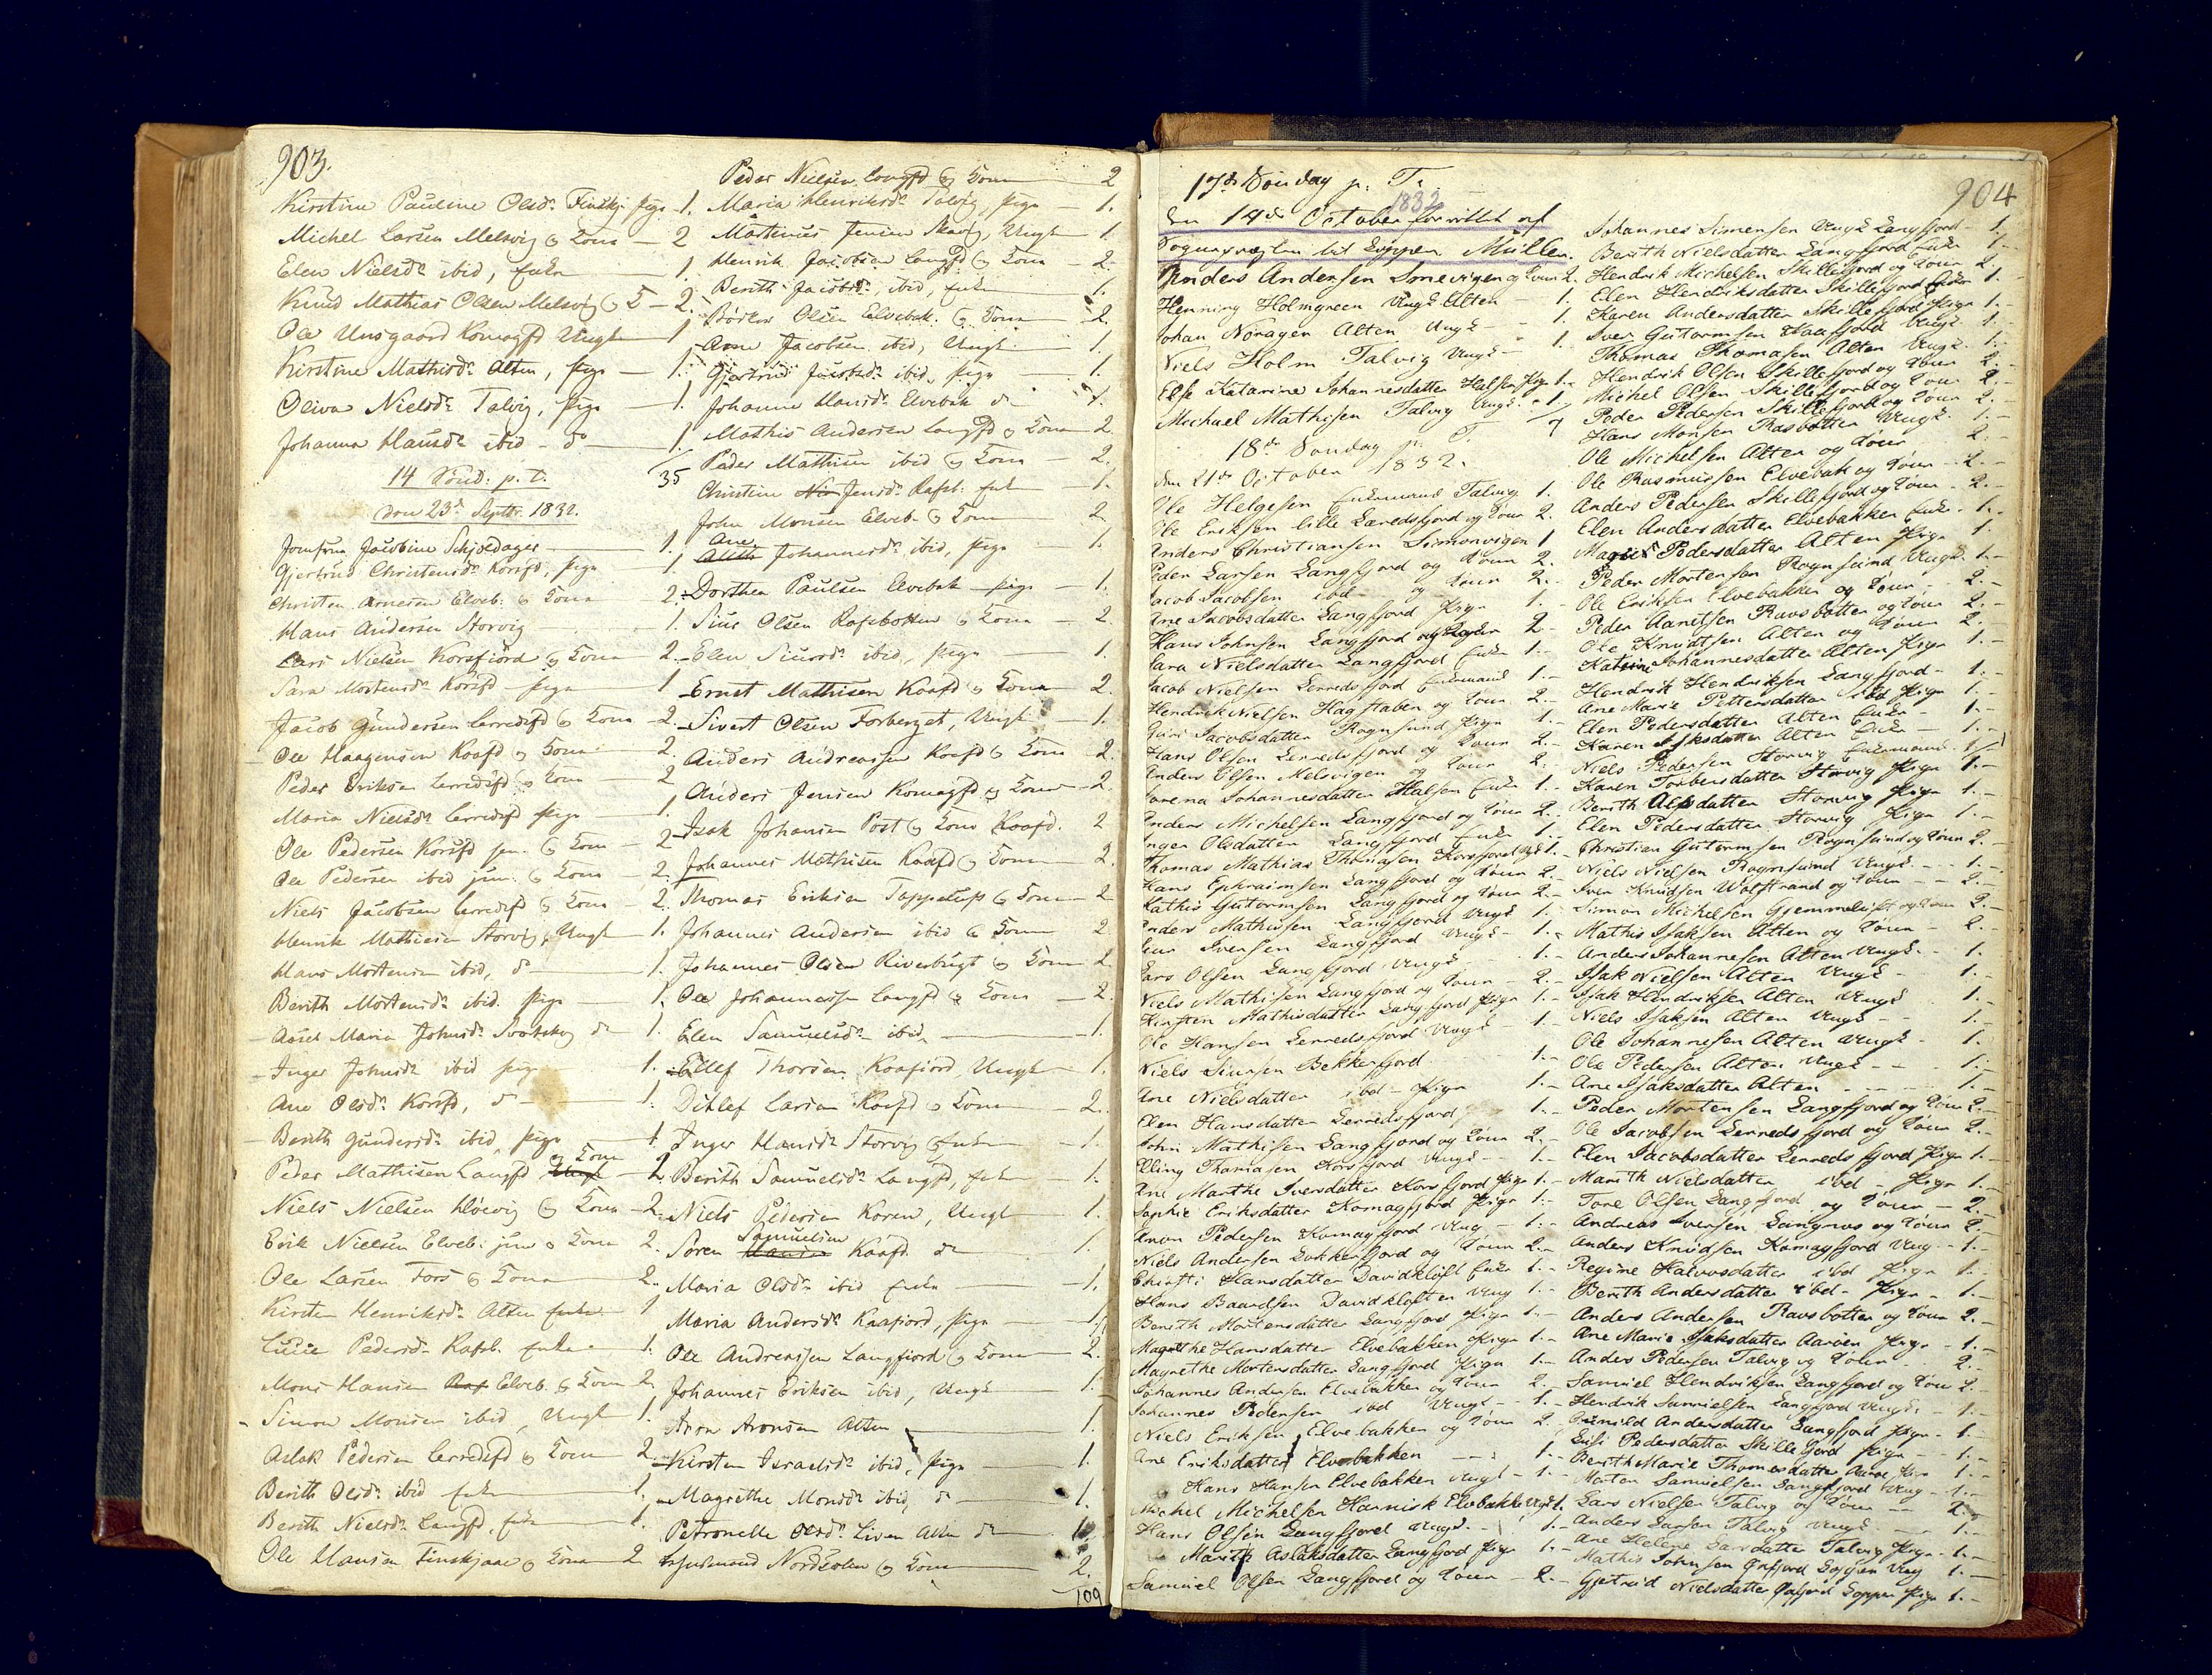 903.
Kirstine Pauline Olsdr. Finskj. pige - 1.
Michel Larsen Melsvig og Kona - 2
Elen Nielsdr. ibid, enke 1.
Knud Mathias Olsen Melsvig og K - 2.
Ole Unsgaard Komagfd Ungk 1
Kirstine Mathisdr. Alten, pige - 1.
Oliva Nielsdr. Talvig, pige 1.
Johanna Hansdr. ibid - do 1.
35
14 Sönd: p. T.
den 23de Septbr. 1832.
Jomfrue Jacobine Schjelderup 1.
Gjertrud Christensdr. Korsfd, pige 1
Christen Arnesen Elveb. og Kona 2.
Hans Andersen Storvig 1.
Lars Nielsen Korsfiord og Kona 2.
Sara Mortensdr. Korsfd pige 1
Jacob Gundersen Lerredsfd og Kona - 2.
Ole Haagensen Kaafd og Kona 2.
Peder Eriksen Lerredsfd og Kona 2
Maria Nielsdr. Lerredsfd pige 1.
Ole Pedersen Korsfd sen. og Kona - 2
Ole Pedersen ibid jun. og Kona - 2.
Niels Jacobsen Lerredsfd og Kona - 2.
Henrik Mathisen Storvig, Ungk 1.
Hans Mortensen ibid, do 1.
Berith Mortensdr. ibid. pige 1.
Maria Johnsdr. do 1.
Inger Johnsdr. ibid pige 1.
Ane Olsdr. Korsfd, do 1.
Berith Gundersdr. ibid, pige 1.
Peder Mathisen Langfd og Kona 2.
Niels Nielsen og Kona - 2.
Erik Nielsen Elveb. jun og Kona 2.
Ole Larsen Fors og Kona 2.
Kirsten Henriksdr. Alten enke 1
Pedersdr. Rafsb. enke 1.
Mons Hansen Elveb. og Kona 2.
Simon Monsen ibid, Ungk 1.
Aslak Pedersen Lerredsfd og Kona 2.
Berith Olsdr. ibid enke 1.
Berith Nielsdr. Langfd. enke 1.
Ole Hansen Finskjaae og Kona 2
Peder Nielsen Langfd og Kona 2
Maria Henriksdr. Talvig, pige - 1.
Martinus Jensen, Ungk 1.
Henrik Jacobsen Langfd og Kona - 2.
Berith Jacobsdr. ibid, enke 1.
Olsen Elvebak. og Kona - 2.
Arne Jacobsen ibid, Ungk 1.
Gjertrud Jacobsdr. ibid, pige 1.
Johanna Hansdr. Elvebak do 1.
Mathis Andersen Langfd og Kona 2.
Peder Mathisen ibid og Kona - 2.
Christine Jensdr. Rafsb. enk 1.
John Monsen Elveb. og Kona 2
Ane Johannesdr. ibid, pige 1.
Dorthea Paulsen Elvebak pige - 1.
Siur Olsen Rafsbotten og Kona - 2
Elen Siursdr. ibid, pige 1.
Ernst Mathisen Kaafd og Kona 2.
Sivert Olsen Forberget, Ungk 1.
Anders Andreassen Kaafd og Kona 2.
Anders Jensen Komagfd og Kona - 2.
Isak Johansen Post og Kona Kaafd. 2
Johannes Mathisen Kaafd og Kona 2.
Thomas Eriksen Toppelup og Kona - 2
Johannes Andersen ibid og Kona 2
Johannes Olsen Riverbugt og Kona 2.
Ole Johannessen Langfd og Kona - 2.
Elen Samuelsdr. ibid, 1.
Thorsen Kaafiord, Ungk - 1.
Ditlef Larsen Kaafd og Kona - 2.
Inger Hansdr. Storvig enke - 1.
Berith Samuelsdr. Langfd, enke - 1.
Niels Pedersen Koren, Ungk 1.
Sören Samuelsen Kaafd. do 1.
Maria Olsdr. ibid enke 1.
Maria Andersdr. Kaafiord, pige 1.
Ole Andreassen Langfiord og Kona 2.
Johannes Eriksen ibid, Ungk 1.
Aron Aronsen Alten 1.
Kirsten Israelsdr. ibid, pige 1.
Magrethe Monsdr. ibid, do 1.
Petronelle Olsdr. Alten do 1.
Gudmund og Kona 2.
109
904
17de Sönday p. T.
1832
den 14de October forrettet af
til Loppen Müller.
Anders Andersen Smevigen og Kona 2.
Henning Holmgreen Ungk Alten 1.
Johan Noragen Alten Ungk 1.
Niels Holm Talvig Ungk - 1
Else Katarine Johannesdatter Halsen Pige 1.
Michael Mathisen Talvig Ungk 1.
7
18de Sönday p. T.
den 21de October 1832.
Ole Helgesen Enkemand Talvig 1.
Ole Eriksen lille Leredsfjord og Kona 2.
Anders Christiansen Simonvigen 1
Peder Larsen Langfjord og Kona 2.
Jacob Jacobsen ibd og Kona 2.
Ane Jacobsdatter Langfjord Pige 1.
Hans Johnsen Langfjord og Kona 2.
Sara Nielsdatter Langfjord Enke 1.
Jacob Nielsen Lerredsfjord Enkemand 1.
Hendrik Nielsen Hagstaben og Kona 2.
Guri Jacobsdatter Rognsund Pige 1.
Hans Olsen Lerredsfjord og Kona 2.
Anders Olsen Melsvigen og Kona 2.
Lorena Johannesdatter Halsen Enke 1.
Anders Michelsen Langfjord og Kona 2.
Inger Olsdatter Langfjord Enke 1.
Thomas Mathias Thomasen Korsfjord Ungk 1.
Hans Ephraimsen Langfjord og Kona 2.
Mathis Guttormsen Langfjord og Kona 2.
Anders Mathisen Langfjord Ungk 1.
Iversen Langfjord Ungk 1.
Lars Olsen Langfjord Ungk 1.
Niels Mathisen Langfjord og Kona 2.
Kirsten Mathisdatter Langfjord Pige 1.
Ole Hansen Lerredsfjord Ungk 1.
Niels Siursen Bekkerfjord 1.
Ane Nielsdatter ibd - Pige 1.
Elen Hansdatter Lerredsfjord 1.
John Mathisen Langfjord og Kona 2.
Elling Thomasen Korsfjord Ungk 1.
Ane Marthe Iversdatter Korsfjord Pige 1.
Sophie Eriksdatter Komagfjord Pige 1.
Amon Pedersen Komagfjord Ung 1.
Niels Andersen Lokkerfjord og Kona 2.
Chirsti Hansdatter Davidkloft Enke 1.
Hans Baardsen Davidkloften Ung 1.
Bereth Mortensdatter Langfjord Pige 1.
Magrethe Hansdatter Elvebakken Pige 1.
Magrethe Mortensdatter Langfjord Pige 1.
Johannes Andersen Elvebakken og Kona 2.
Johannes Pedersen ibd Ungk 1.
Niels Eriksen Elvebakken og Kona 2.
Ane Eriksdatter Elvebakken 1.
Hans Hansen Elvebakken Ungk 1.
Michel Michelsen Kornisk Elvebakke Ungk 1.
Hans Olsen Langfjord Ungk. 1.
Marith Aslaksdatter Langfjord Pige 1.
Samuel Olsen Langfjord og Kona 2.
Johannes Simensen Ungk Langfjord - 1.
Berith Nielsdatter Langfjord Enke 1.
Hendrik Michelsen Skillefjord og Kona 2
Elen Hendriksdatter Skillefjord Enke 1.
Karen Andersdatter Skillefjord Pige 1.
Iver Guttormsen Kaafjord Ungk 1.
Thomas Thomasen Alten Ungk. 1.
Hendrik Olsen Skillefjord og Kona 2.
Michel Olsen Skillefjord og Kona 2.
Peder Pedersen Skillefjord og Kona 2.
Hans Monsen Rasbotten Ungk. 1.
Ole Michelsen Alten og Kona 2.
Ole Rasmussen Elvebak og Kona 2.
Anders Pedersen Skillefjord og Kona 2.
Elen Andersdatter Elvebakken Enke 1.
Pedersdatter Alten Pige 1.
Peder Mortensen Rognsund Ungk. 1.
Ole Eriksen Elvebakken og Kona 2.
Peder Aanetsen Ravsbotten og Kona 2.
Ole Knudtsen Alten og Kona 2.
Katrine Johannesdatter Alten Pige 1.
Hendrik Hendriksen Langfjord 1.
Ane Marie Pettersdatter ibd Pige 1.
Elen Pedersdatter Alten Enke 1.
Karen Isaksdatter Alten Enke 1.
Niels Pedersen Storvig Enkemand 1.
Karen Torbensdatter Storvig Pige 1.
Berith Alsdatter Storvig Pige 1.
Elen Pedersdatter Storvig Pige 1.
Christian Guttormsen Rognsund og Kona 2.
Niels Nielsen Rognsund Ungk. 1.
Iver Knudsen Wolfstrand og Kona 2.
Simon Michelsen Gjemmeluft og Kona 2.
Mathis Isaksen Alten og Kona 2.
Anders Johannesen Alten Ungk. 1.
Isak Nielsen Alten Ungk 1.
Isak Hendriksen Alten Ungk 1.
Niels Isaksen Alten Ungk 1.
Ole Johannesen Alten Ungk 1.
Ole Pedersen Alten Ungk 1.
Ane Isaksdatter Alten 1.
Peder Mortensen Langfjord og Kona 2.
Ole Jacobsen Lerredsfjord og Kona 2.
Elen Jacobsdatter Lerredsfjord Pige 1.
Marith Nielsdatter ibd - Pige 1.
Tore Olsen Langfjord og Kona 2.
Andreas Iversen Langnes og Kona 2.
Anders Knudsen Komagfjord Ung 1.
Regine Halvorsdatter ibd Pige 1.
Berith Andersdatter ibd - Pige 1.
Anders Andersen Ravsbotten og Kona 2.
Ane Marie Isaksdatter Aaröen Pige 1.
Anders Pedersen Talvig og Kona 2.
Samuel Hendriksen Langfjord og Kona 2.
Hendrik Samuelsen Langfjord Ungk. 1.
Gunild Andersdatter Langfjord Pige 1.
Pedersdatter Skillefjord Pige 1.
Berith Marie Thomesdatter Pige 1.
Morten Samuelsen Langfjord Ung 1.
Lars Nielsen Talvig og Kona 2.
Anders Larsen Talvig Ungk 1.
Ane Helene Larsdatter Talvig Pige 1.
Mathis Johnsen Öxfjord Loppen Ung 1.
Gjetrud Nielsdatter Öxfjord Loppen Pige 1.